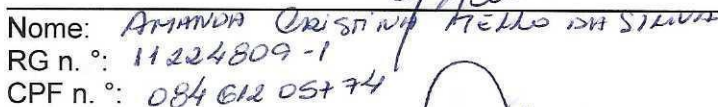 Nome: AMANDA CRISTINA MELLO DA SILVA
RG n. °: 11224809-1
CPF n. °: 084 612 057 74